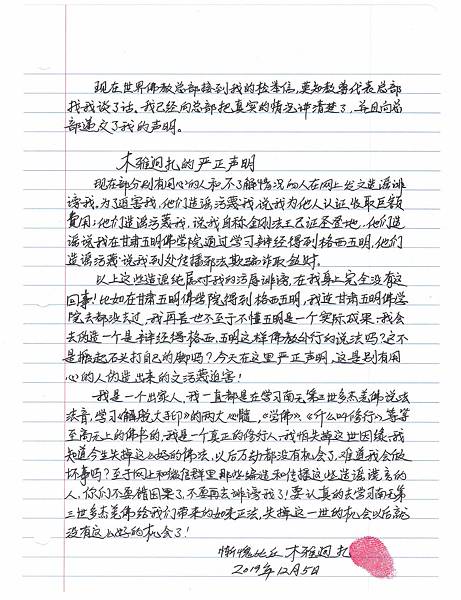 现在世界佛教总部接到我的检举信,莫知教尊代表总部
找我谈了话。我已经向总部把真实的情况讲清楚了,并且向总
部递交了我的声明。
木雅迥扎的严正声明
现在部分别有用心的人和不了解情况的人在网上发文造谣诽
谤我,为了迫害我,他们造谣污蔑我,说我为他人认证收取巨额
费用;他们造谣污蔑我,说我自称金刚法王已证圣登地,他们造
谣说我在甘肃五明佛学院通过学习辩经得到格西五明,他们
造谣污蔑说我到处传播邪法欺骗诈取钱财。
以上这些造谣纯属对我的污辱诽谤,在我身上完全没有这
回事!比如在甘肃五明佛学院得到格西五明,我连甘肃五明佛学
院去都没去过,我再丢也不至于不懂五明是一个实际成果,我会
去伪造一个是辩经得格西、五明这样佛教外行的说法吗?这不
是搬起石头打自己的脚吗?今天在这里严正声明,这是别有用
心的人伪造出来的文污蔑迫害!
我是一个出家人,我一直都是在学习南无第三世多杰羌佛说法
法音,学习《解脱大手印》的两大心髓,《学佛》、《什么叫修行》等等
至高无上的佛书的,我是一个真正的修行人,我怕失掉这世因缘,我
知道今生失掉这么好的佛法,以后万劫都没有机会了,难道我会做
坏事吗?至于网上和微信群里那些编造和传播这些造谣谎言的
人,你们不要错因果了,不要再去诽谤我了!要认真的去学习南无第
三世多杰羌佛给我们带来的如来正法,失掉这一世的机会以后就
没有这么好的机会了!
惭愧比丘 木雅迥扎
2019年12月5日